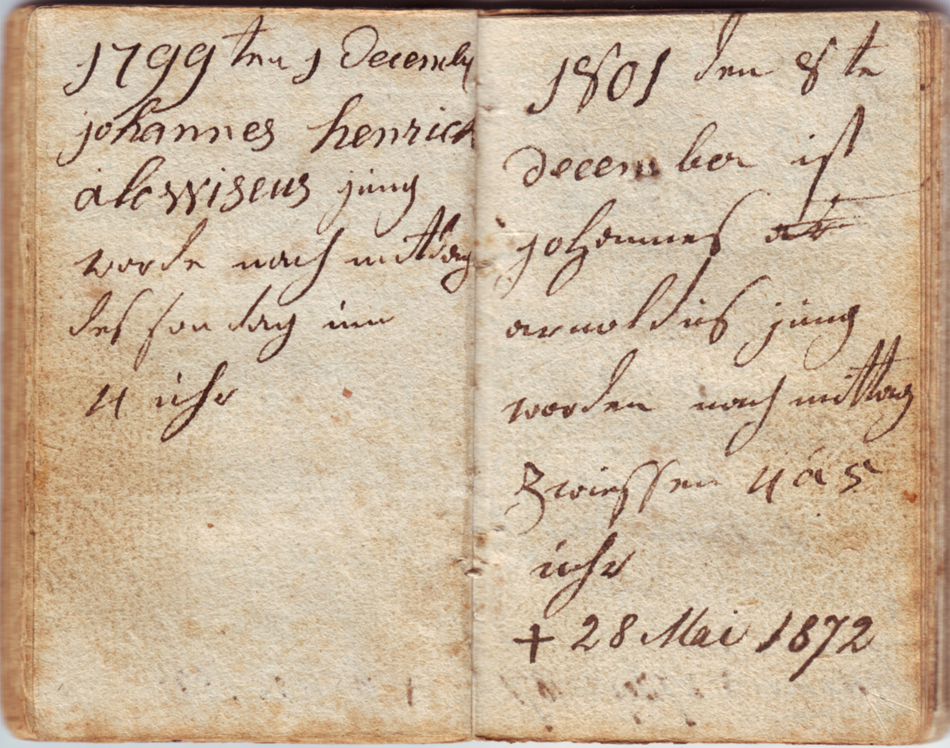 1799 ten 1 Decemb
johannes henrich
alewiseus jung
worde nach mittag
des son dag um
4 uhr
1801 den 8te
december ist
johannes
arnoldus jung
worden nach mittag
Zwiessen 4 à 5
uhr
+ 28 Mai 1872